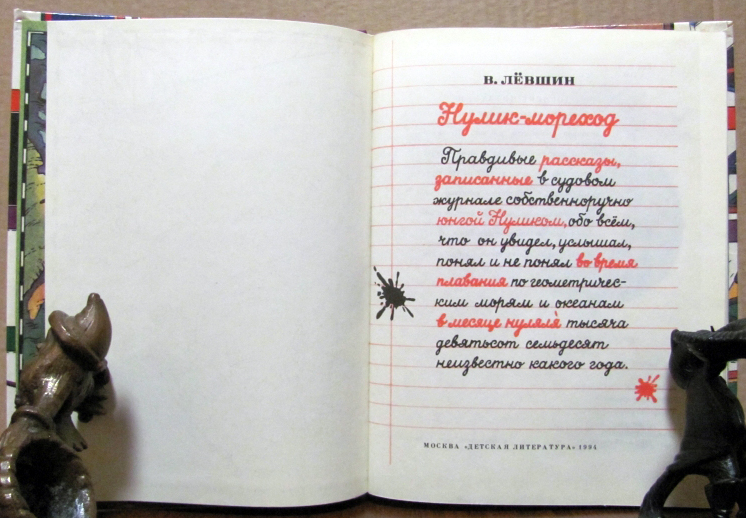 В. ЛЁВШИН
Нулик-мореход
Правдивые рассказы,
записанные в судовом
журнале собственноручно
юнгой Нуликом, обо всём,
что он увидел, услышал,
понял и не понял во время
плавания по геометричес-
ким морям и океанам
в месяце нуляле́ тысяча
девятьсот семьдесят
неизвестно какого года.
МОСКВА «ДЕТСКАЯ ЛИТЕРАТУРА» 1994